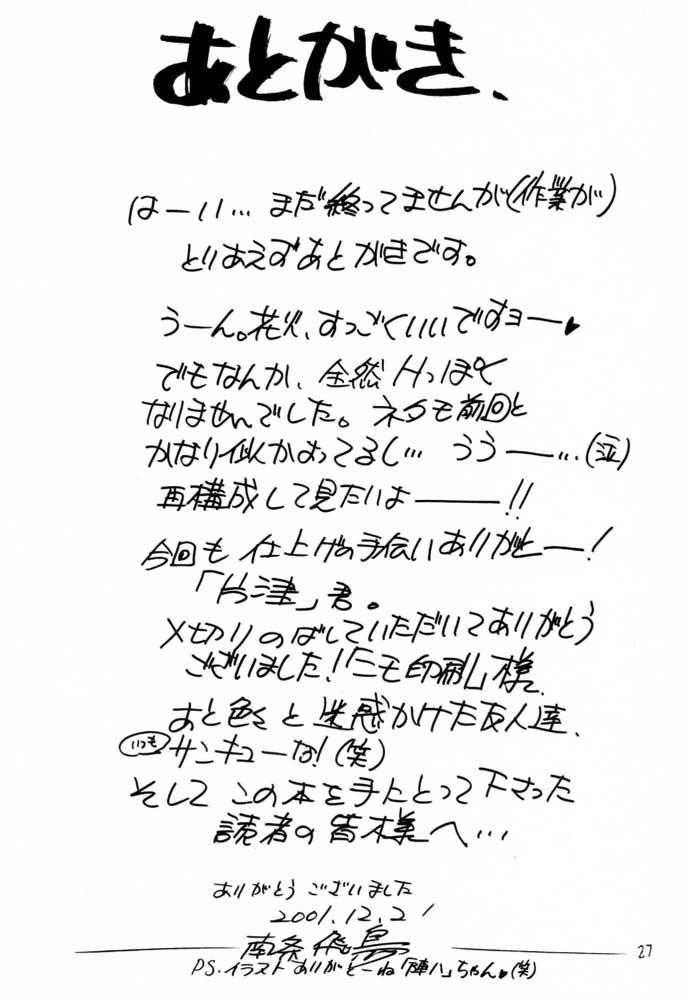 あとがき、
はーい…まだ終ってませんが(作業が)
とりあえずあとがきです。
うーん。花火、すっごくいいですョー♥
でもなんか、全然Hっぽく
なりませんでした。ネタも前回と
かなり似かよってるし… うう——…(泣)
再構成して見たいよ———!!
今回も仕上げの手伝いありがとー!
「片津」君。
〆切りのばしていただいてありがとう
ございました!「ニモ印刷」様、
あと色々と迷惑かけた友人達、
いつも サンキューな!(笑)
そしてこの本を手にとって下さった
読者の皆様へ…
ありがとうございました
2001.12.21
南条飛鳥
27
P.S.イラストありがとーね「陣八」ちゃん♥(笑)